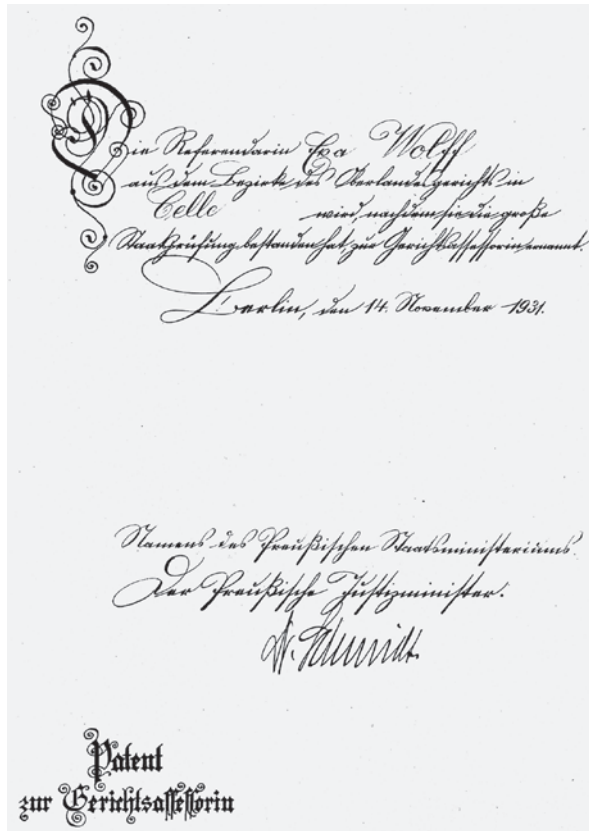 Die Referendarin Eva Wolff
aus dem Bezirke des Oberlandesgerichts in
Celle wird, nachdem sie die große
Staatsprüfung bestanden hat, zur Gerichtsassessorin ernannt.
Berlin, den 14. November 1931.
Namens des Preußischen Staatsministeriums.
Der Preußische Justizminister.
Dr. Schmidt
Patent
zur Gerichtsassessorin